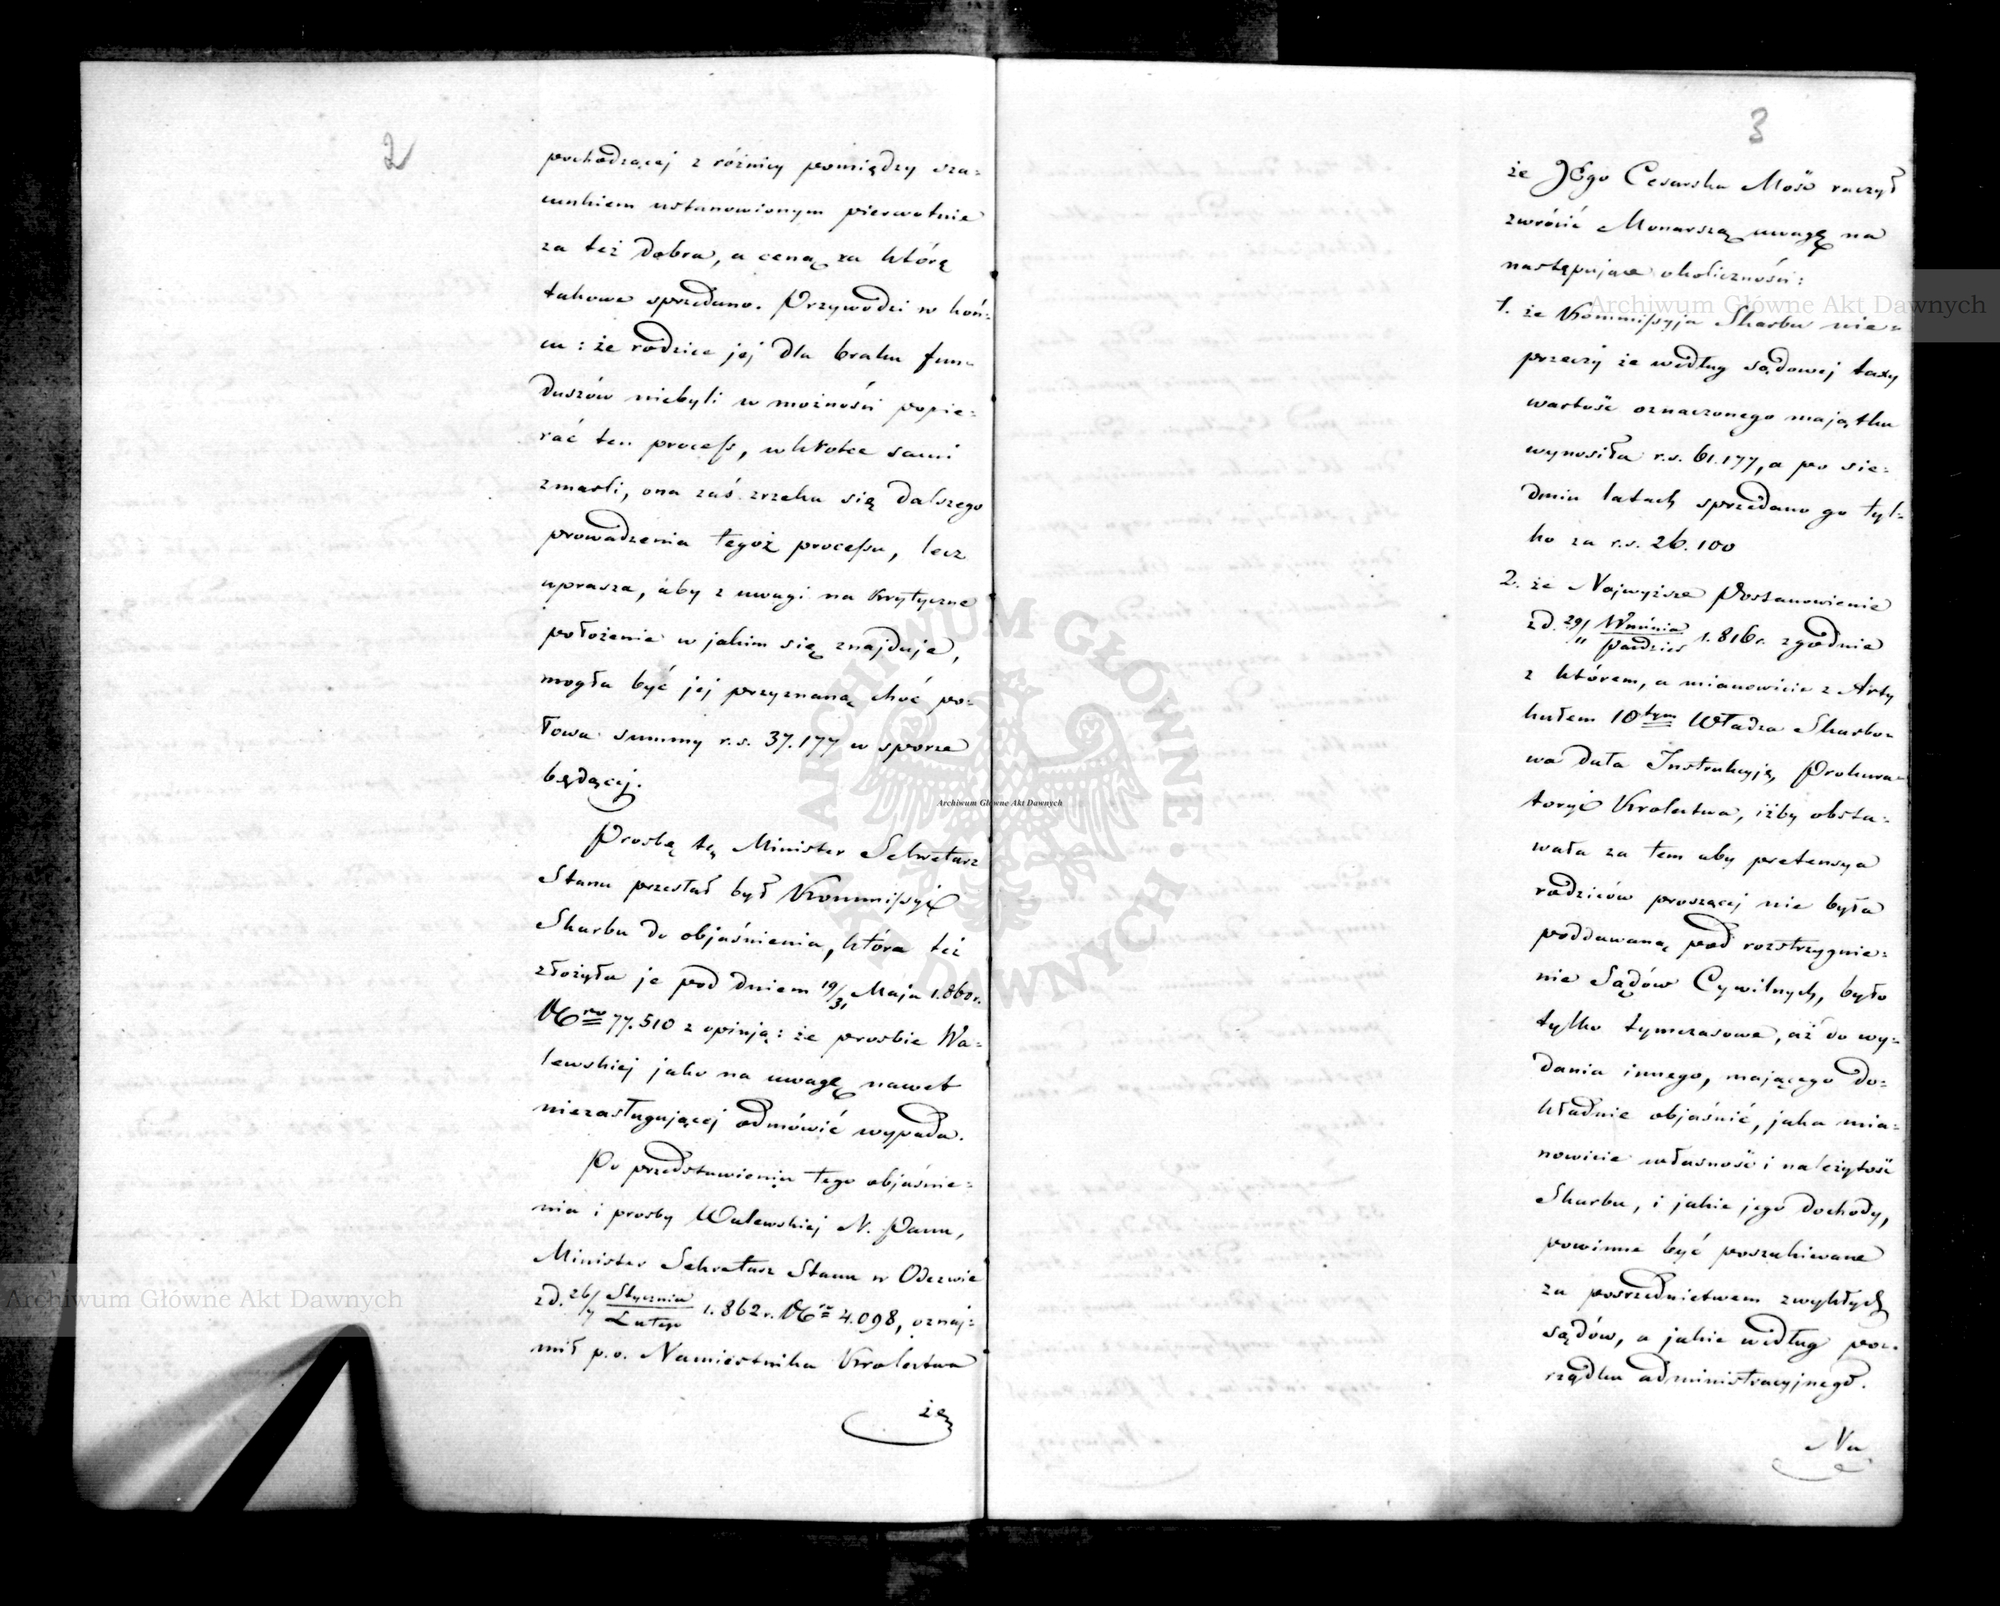 2
pochodzącej z różnicy pomiędzy sza-
cunkiem ustanowionym pierwotnie
za też dobra, a ceną za którę
takowe sprzedano. Przywodzi w koń-
cu: że rodzice jej dla braku fun-
duszów niebyli w możności popie-
rać ten process, wkrotce sami
zmarli, ona zaś zrzeka się dalszego
prowadzenia tegoż processu, lecz
uprasza, aby z uwagi na krytyczne
położenie w jakim się znajduje,
mogła być jej przyznaną choć po-
łowa summy r.s. 37.177 w sporze
będącej.
Prosbę tę Minister Sekretarz
Stanu przesłał był Kommissyi
Skarbu do objaśnienia, która też
złożyła je pod dniem 19/31 Maja 1.860r.
Nro 77.510 z opinją: że prosbie Wa-
lewskiej jako na uwagę nawet
niezasługującej odmówić wypada.
Po przedstawieniu tego objaśnie-
nia i prosby Walewskiej N. Panu,
Minister Sekretarz Stanu w Odezwie
z d. 26/7 Stycznia/Lutego 1.862r. Nro 4.098, oznaj-
mił p.o. Namiestnika Krolestwa
że
3
że JEgo Cesarska Mość raczył
zwrócić Monarszą uwagę na
następujące okoliczności:
1. że Kommissyja Skarbu nie-
przeczy że według sądowej taxy
wartość oznaczonego majątku
wynosiła r.s. 61.177, a po sie-
dmiu latach sprzedano go tyl-
ko za r.s. 26.100
2. że Najwyższe Postanowienie
z d. 29/11 Wrznia/Paździer 1.816r. zgodnie
z którem, a mianowicie z Arty
kułem 10tym Władza Skarbo-
wa dała Instrukcyją Prokura-
toryi Krolestwa, iżby obsta-
wała za tem aby pretensya
rodziców proszącej nie była
poddawaną pod rozstrzygnie-
nie Sądów Cywilnych, było
tylko tymczasowe, aż do wy-
dania innego, mającego do-
kładnie objaśnić, jaka mia-
nowicie własność i należytość
Skarbu, i jakie jego dochody,
powinne być poszukiwane
za posrzednictwem zwykłych
sądów, a jakie według po-
rządku administracyjnego.
Na
Archiwum Główne Akt Dawnych
Archiwum Główne Akt Dawnych
Archiwum Główne Akt Dawnych
ARCHIWUM GŁÓWNE AKT DAWNYCH